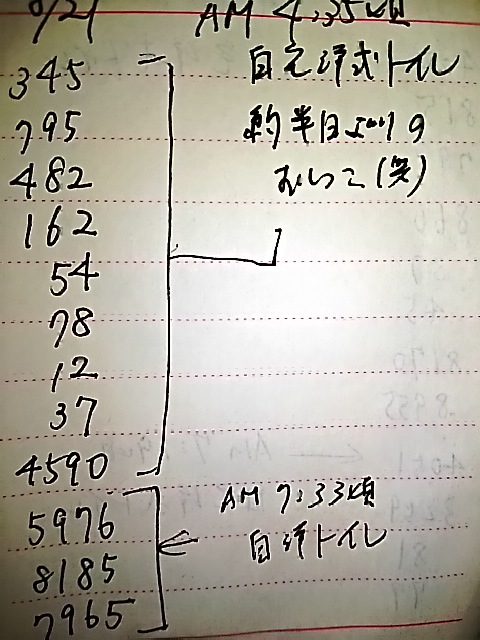 9/21 AM 4:35頃
345
自宅洋式トイレ
795
約半日ぶりの
482
おしっこ(笑)
162
54
78
12
37
4590
AM 7:33頃
5976
自洋トイレ
8185
7965